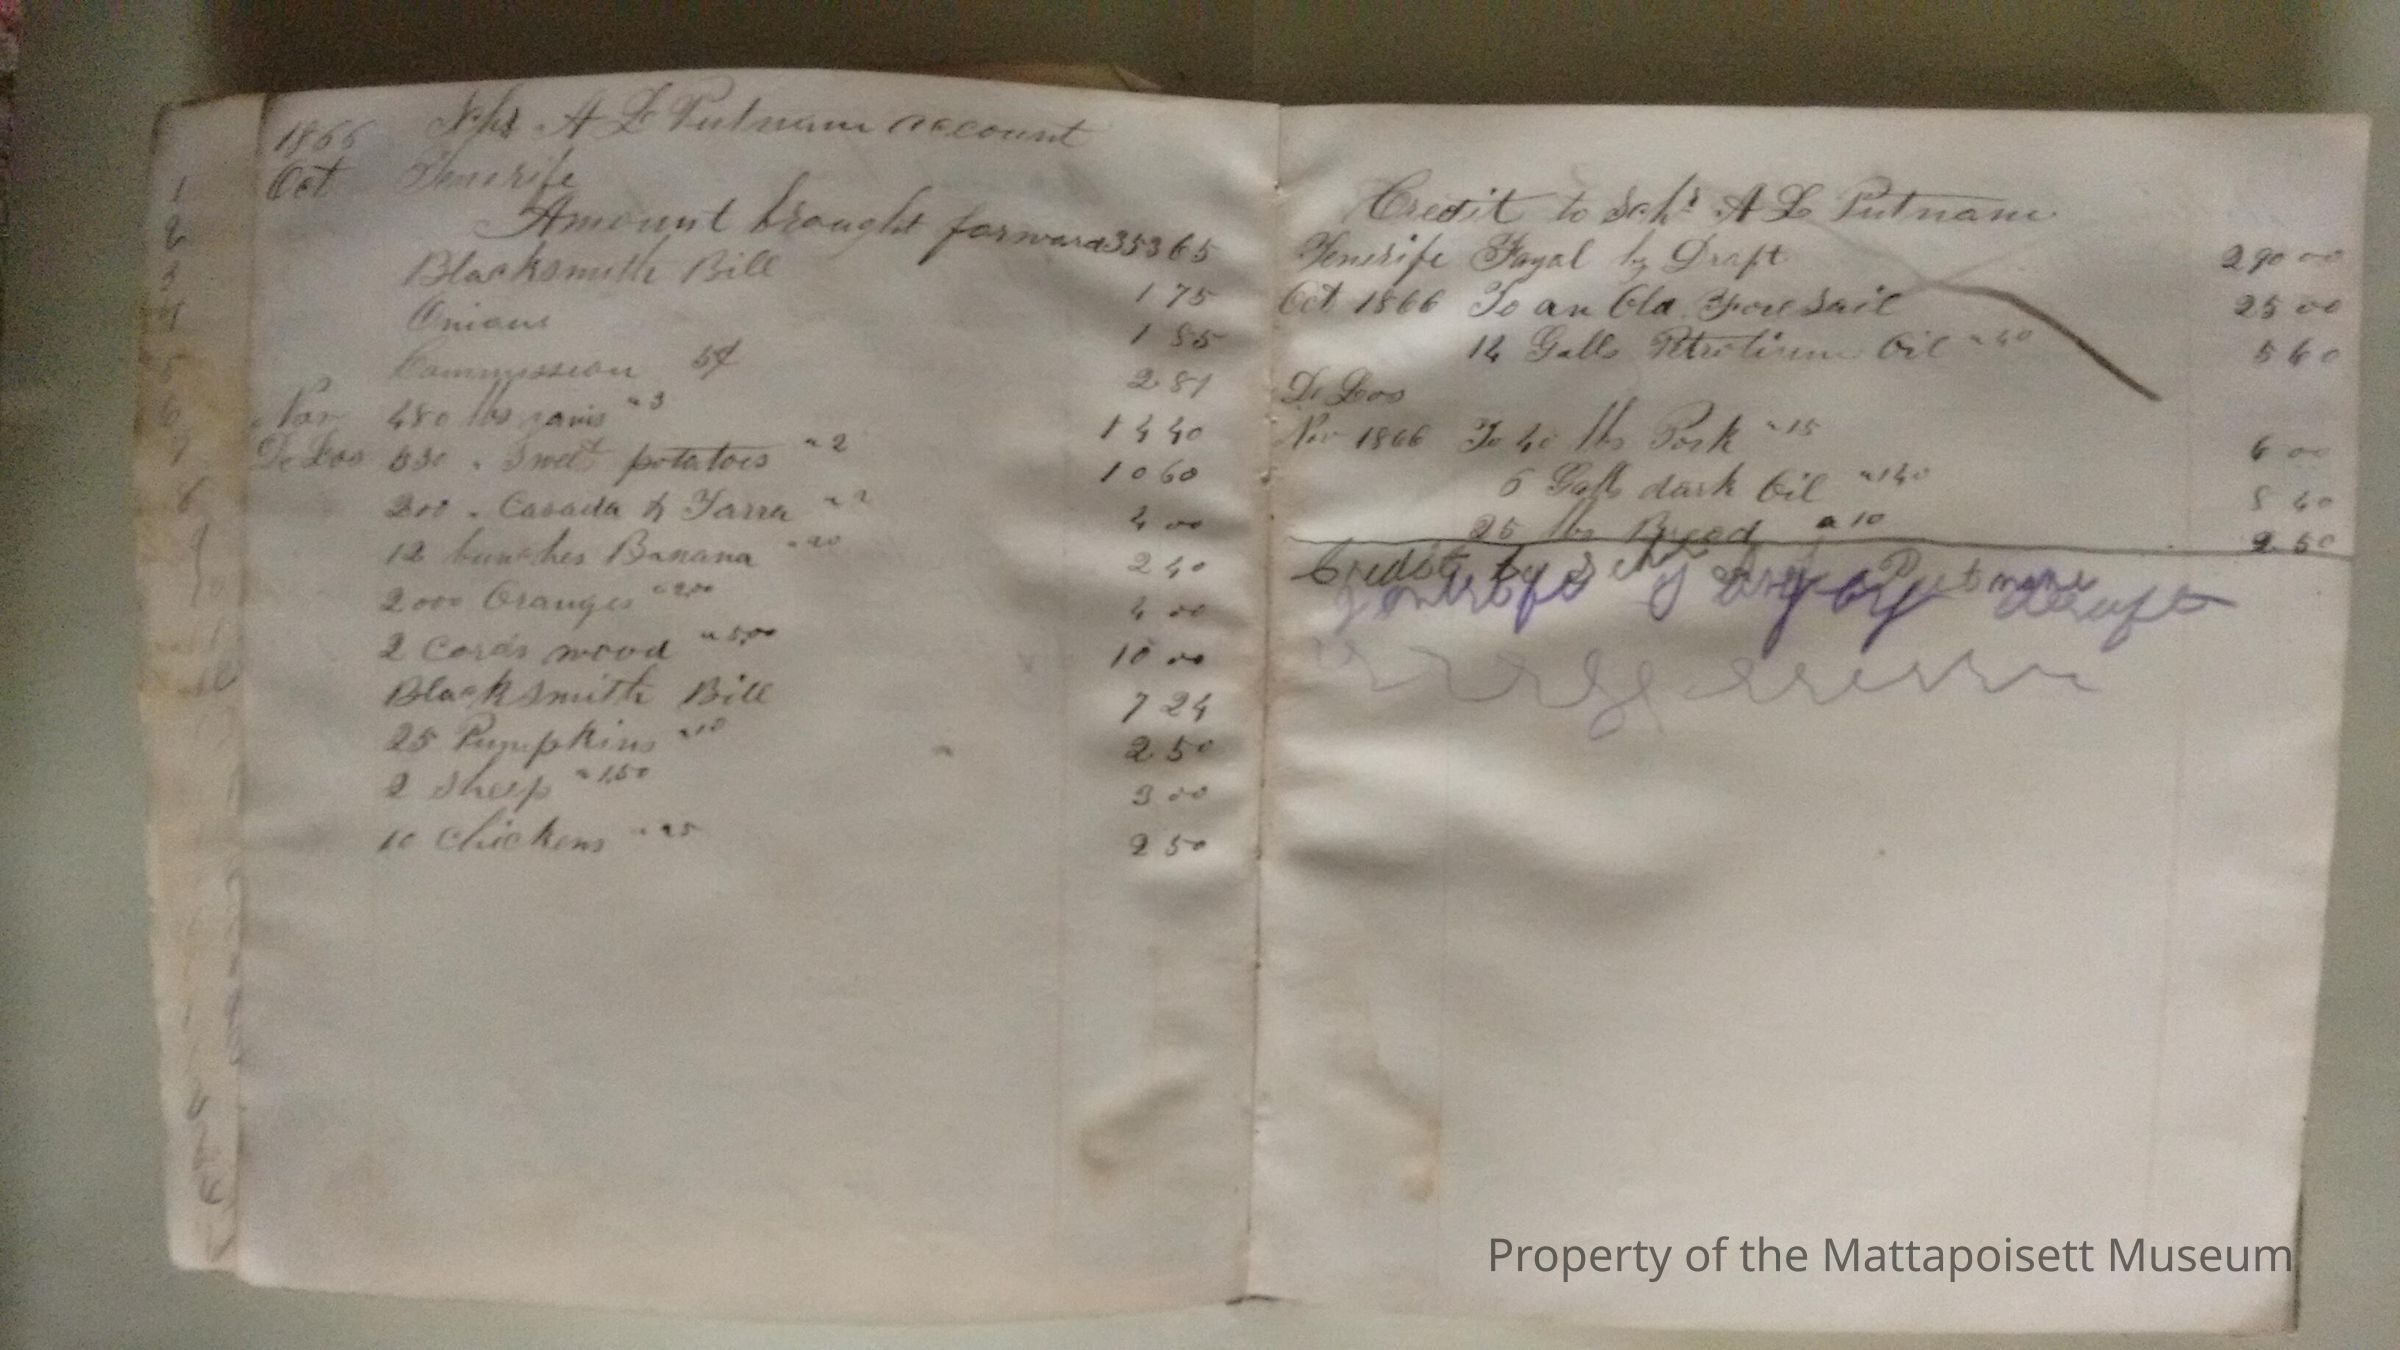 Schr A L Putnam account
1866
Oct Tenerife
Amount brought forward 353 65
Blacksmith Bill 1 75
Onions 1 85
Commission 5¢ 2 81
Nov 480 lbs yams " 3 14 40
De Los 530 " Sweet potatoes " 2 10 60
200 " Casada & Tarra " 2 4 00
12 bunches Banana " 20 2 40
2000 Oranges " 2,00 4 00
2 Cords wood " 5,00 10 00
Blacksmith Bill 7 24
25 Pumpkins " 10 2 50
2 Sheep " 1,50 3 00
10 Chickens " 25 2 50
Credit to Schr A L Putnam
Tenerife Fayal by Draft 290 00
Oct 1866 To an Old Foresail 25 00
14 Galls Petrolium Oil " 40 5 60
De Los
Nov 1866 To 40 lbs Pork " 15 6 00
6 Galls dark Oil " 1 40 8 40
25 lbs Bread a 10 2 50
Credit by Schr Putnam
draft
Property of the Mattapoisett Museum